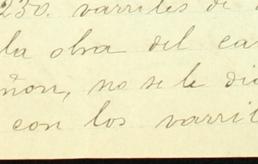 230. varriles de
la obra del ca
ñon, no se le di
con los varril